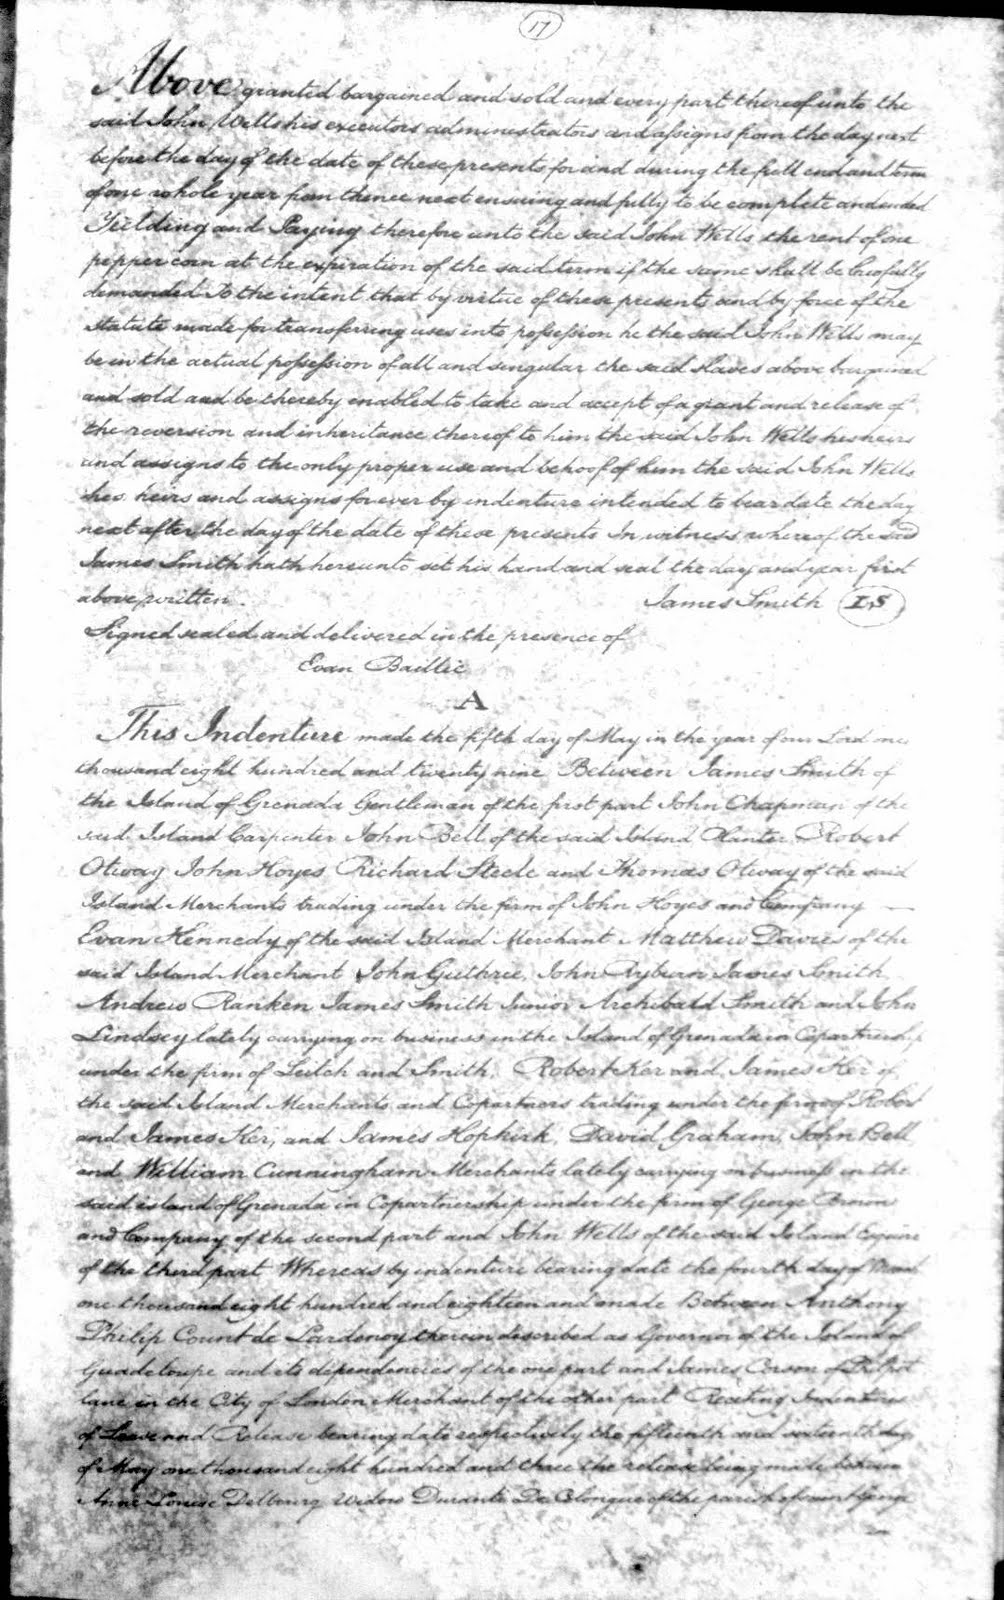 17
Above granted bargained and sold and every part thereof unto the
said John Wells his executors administrators and assigns from the day next
before the day of the date of these presents for and during the full end and term
of one whole year from thence next ensuing and fully to be complete and ended
Yielding and Paying therefore unto the said John Wells the rent of one
pepper corn at the expiration of the said term if the same shall be lawfully
demanded To the intent that by virtue of these presents and by force of the
statute made for transferring uses into possession he the said John Wells may
be in the actual possession of all and singular the said slaves above bargained
and sold and be thereby enabled to take and accept of a grant and release of
the reversion and inheritance thereof to him the said John Wells his heirs
and assigns to the only proper use and behoof of him the said John Wells
his heirs and assigns for ever by indenture intended to bear date the day
next after the day of the date of these presents In witness whereof the said
James Smith hath hereunto set his hand and seal the day and year first
above written. James Smith LS
Signed sealed and delivered in the presence of
Evan Baillie
A
This Indenture made the fifth day of May in the year of our Lord one
thousand eight hundred and twenty nine Between James Smith of
the Island of Grenada Gentleman of the first part John Chapman of the
said Island Carpenter John Bell of the said Island Planter Robert
Otway John Hoyes Richard Steele and Thomas Otway of the said
Island Merchants trading under the firm of John Hoyes and Company
Evan Kennedy of the said Island Merchant Matthew Davies of the
said Island Merchant John Guthrie, John Ryburn James Smith
Andrew Ranken James Smith Junior Archibald Smith and John
Lindsey lately carrying on business in the Island of Grenada in Copartnership
under the firm of Leitch and Smith, Robert Ker and James Ker of
the said Island Merchants and Copartners trading under the firm of Robert
and James Ker, and James Hopkirk, David Graham, John Bell
and William Cunningham Merchants lately carrying on business in the
said island of Grenada in Copartnership under the firm of George Brown
and Company of the second part and John Wells of the said Island Esquire
of the third part Whereas by indenture bearing date the fourth day of March
one thousand eight hundred and eighteen and made Between Anthony
Philip Count de Lardenoy therein described as Governor of the Island of
Guadeloupe and its dependencies of the one part and James Corson of Philpot
lane in the City of London Merchant of the other part Reciting Indentures
of Lease and Release bearing date respectively the fifteenth and sixteenth days
of May one thousand eight hundred and three the release being made between
Anne Louise Delbourg Widow Durante De of the parish of saint George